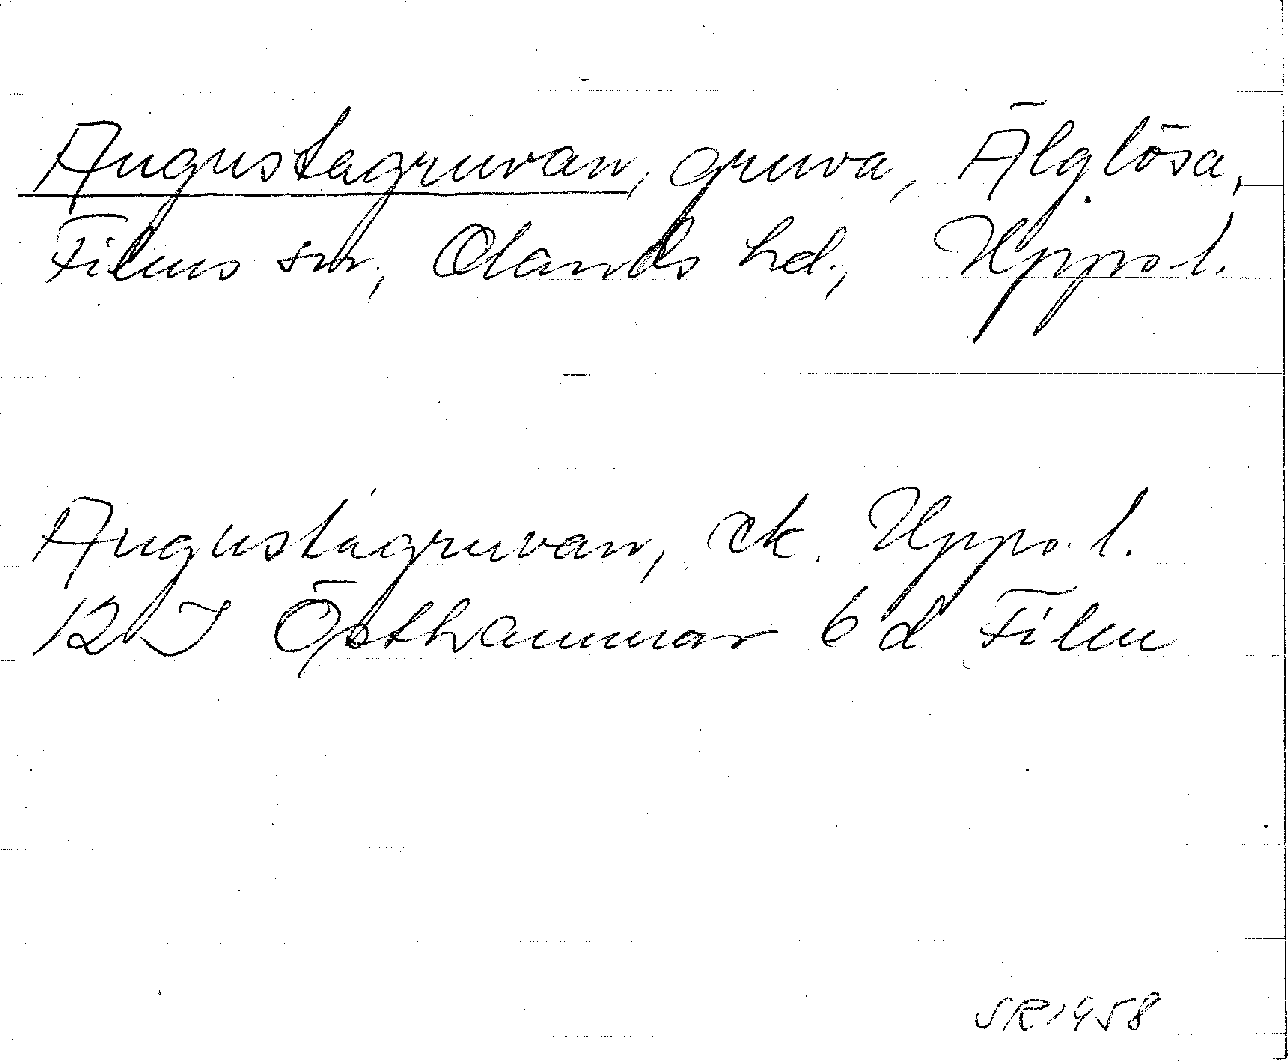 Augustagruvan, gruva, Älglösa,
Films sn, Olands hd., Upps. l.
Augustagruvan, ek. Upps. l.
12 I Östhammar 6 d Film
SR 1958